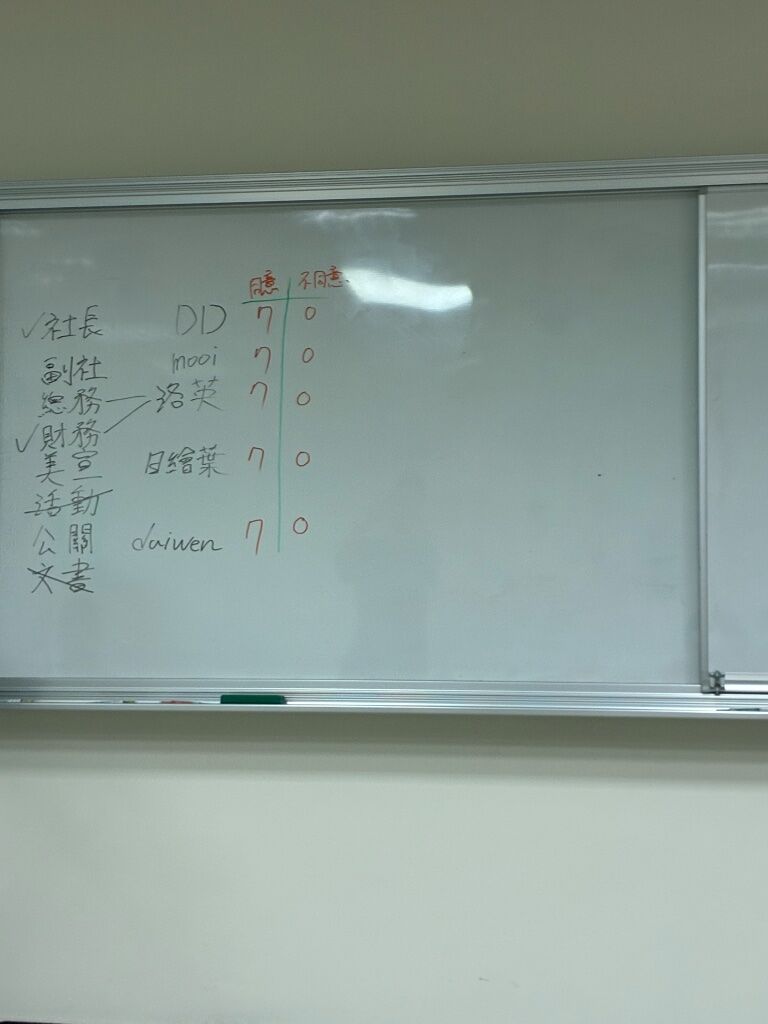 同意 不同意
✓社長 DD 7 0
副社 mooi 7 0
總務 洛英 7 0
✓財務
美宣 日繪葉 7 0
活動
公關 daiwen 7 0
文書